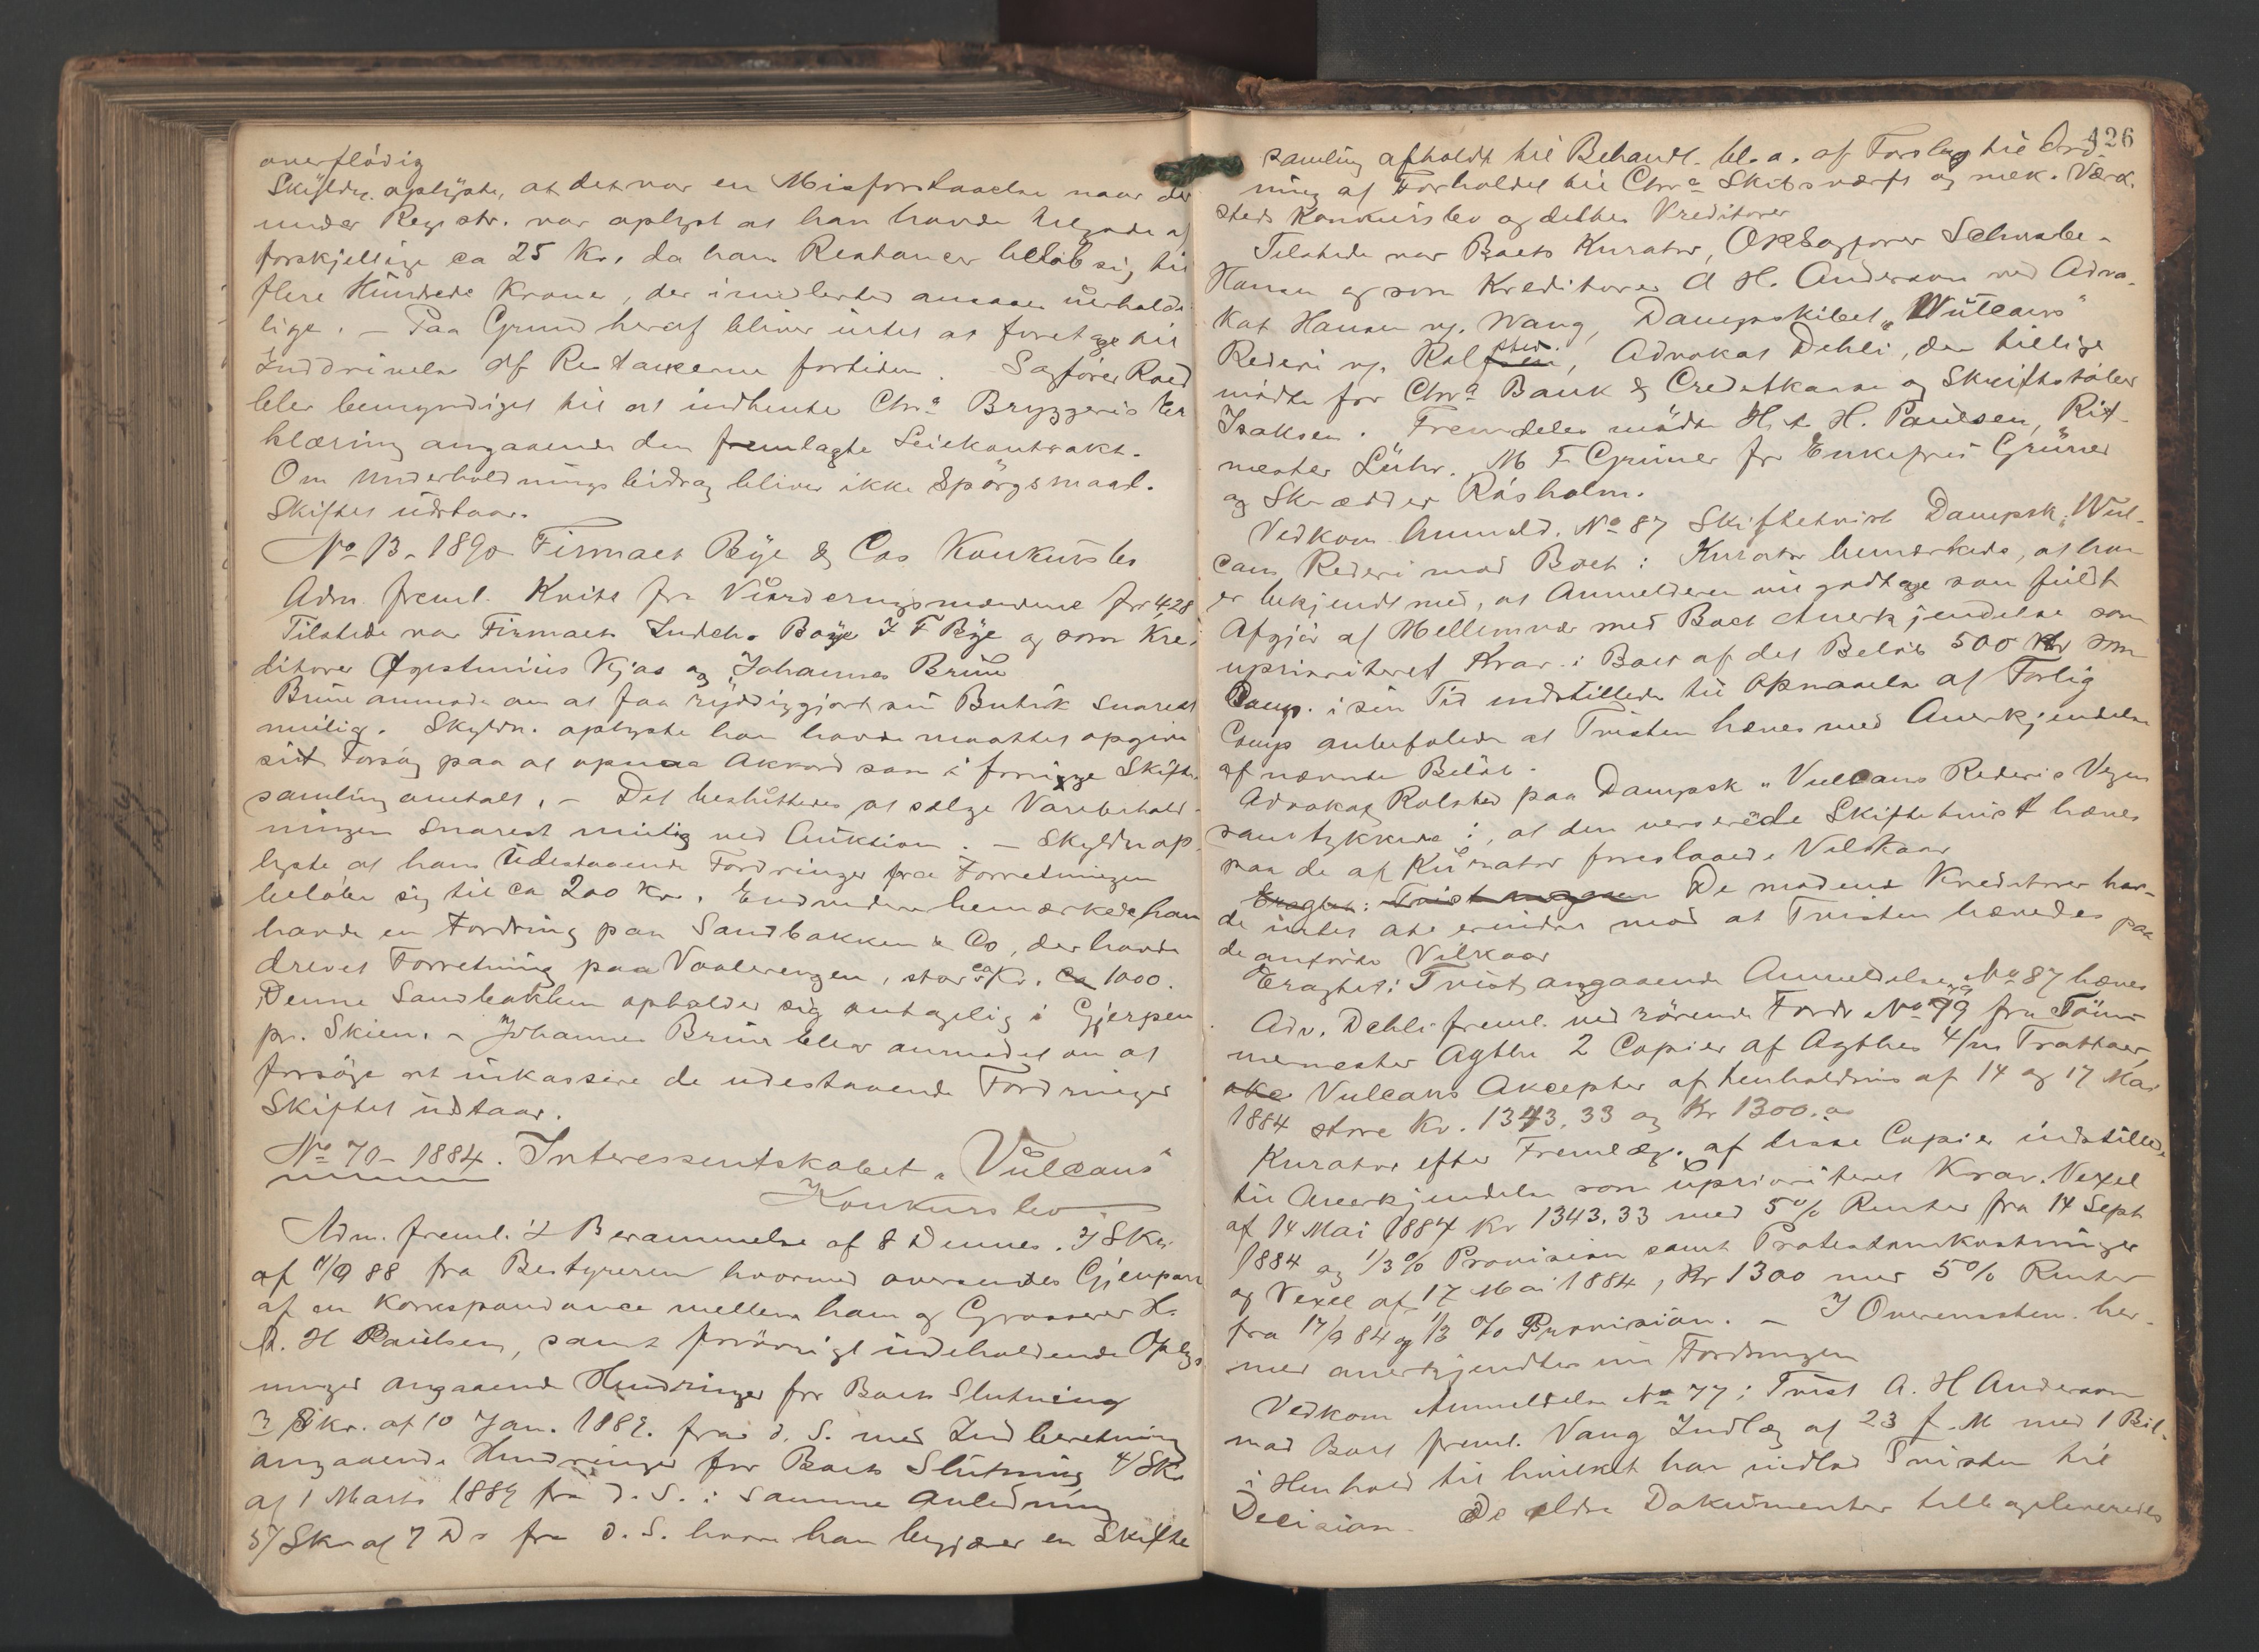 overflödig
Skyldn. oplyste, at det var en Misforstaaelse naar der
under Registr. var oplyst at han havde tilgode af
forskjellige ca 25 Kr, da hans Restancer belöb sig til
flere Hundrede Kroner, der imidlertid ansaaes uerholde
lige. – Paa Grund heraf bliver intet at foretage til
Inddrivelse af Restancerne fortiden. Sagförer Roed
blev bemyndiget til at indhente Chra Bryggeris Er
klæring angaaende den fremlagte Leiekontrakt.
Om Underholdningsbidrag bliver ikke Spörgsmaal.
Skiftet udstaar.
No 13-1890 Firmaet Bye & Cos Konkursbo
Adm. freml. Kvitt fra Vurderingsmændene for 4.28
Tilstede var Firmaets Indeh. F F Bye og som Kre
ditorer Kjos og Johannes Brun
Brun anmodede om at faa ryddiggjort sin Butik snarest
mulig. Skyldn. oplyste han havde maattet opgive
sit Forsög paa at opnaa Akkord som i forrige Skifte
samling omtalt. – Det besluttedes at sælge Varebehold
ningen snarest mulig ved Auktion. – Skyldn op
lyste at hans Udestaaende Fordringer fra Forretningen
belöber sig til ca 200 Kr. Endvidere bemærkede han
havde en Fordring paa Sandbakken & Co, der havde
drevet Forretning paa Vaalerengen, stor ca Kr. 1000.
Denne Sandbakken opholder sig antagelig i Gjerpen
pr. Skien. – Johannes Brun blev anmodet om at
forsöge at inkassere de udestaaende Fordringer
Skiftet udstaar.
No 70-1884. Interessentskabet "Vulcans"
Konkursbo.
Adm. freml. 1/ Berammelse af 8 Dennes. 2/ Skr.
af 11/9 88 fra Bestyreren hvormed oversendes Gjenpart
af en Korrespondance mellem ham og Grosserer Hr
A. H Paulsen, samt forövrigt indeholdende Oplys
ninger angaaende Hindringer for Boets Slutning
3 Skr. af 10 Jan. 1889. fra d. S. med Indberetning
angaaende Hindringer for Boets Slutning 4/ Skr
af 1 Marts 1889 fra d. S. i samme Anledning
5/ Skr af 7 Ds fra d. S. hvori han begjærer en Skifte
126
samling afholdt til Behandl. bl. a. af Forslag til Ord-
ning af Forholdet til Chra Skibsværft og mek. Værk.
steds Konkursbo og dettes Kreditorer
Tilstede var Boets Kurator, ORSagförer Schwabe-
Hansen og som Kreditorer A H. Anderson ved Advo-
kat Hansen og Wang, Dampskibet "Vulcans"
Rederi v. Rolsted, Advokat Dehli, der tillige
mödte for Chra Bank & Creditkasse og Skriftstöber
Isaksen. Fremdeles mödte H. H. Paulsen, Rit-
mester Lühr. M F Grüner for Enkefru Grüner
og Skrædder Råsholm.
Vedkom Anmeld. No 87 Skiftetvist Dampsk. "Vul-
cans Rederi mod Boet: Kurator bemærkede, at han
er bekjendt med, at Anmelderen vil godtage som fuldt
Afgjör af Mellemvær med Boet Anerkjendelse som
uprioriteret Krav i Boet af det Belöb 500 Kr som
Comp. i sin Tid indstillede til Opnaaelse af Forlig
Comp anbefalede at Tvisten hæves med Anerkjendelse
af nævnte Belöb.
Advokat Rolsted paa Dampsk "Vulcans Rederis Vegne
samtykkede i, at den verserede Skiftetvist hæves
paa de af Kurator foreslaaede Vilkaar
Eragtet: De mödende Kreditorer hav-
de intet at erindre mod at Tvisten hævedes paa
de anförte Vilkaar
Eragtet: Tvist angaaende Anmeldelse No 87 hæves
Adv. Dehli freml. ved rörende Fordr No 79 fra Töm-
mermester Agthe 2 Copier af Agthes 4/m Trattaer
Vulcans Akcepter af henholdsvis af 14 og 17 Mai
1884 store Kr. 1343.33 og Kr 1300.00
Kurator efter Fremlæg. af disse Copier indstillede
til Anerkjendelse som uprioriteret Krav. Vexel
af 14 Mai 1884 Kr 1343.33 med 5% Renter fra 14 Sept
1884 og 1/3% Provision samt Protestomkostninger
og Vexel af 17 Mai 1884, Kr 1300 med 5% Renter
fra 17/9 84 og 1/3 % Provision. – I Overensstem. her-
med anerkjendtes Fordringen
Vedkom Anmeldelse No 77: Tvist A. H Anderson
mod Boet freml. Vang Indlæg af 23 f. M med 1 Bil.
i Henhold til hvilket han indlod Tvisten til
Decision. De ældre Dokumenter tilbageleveredes